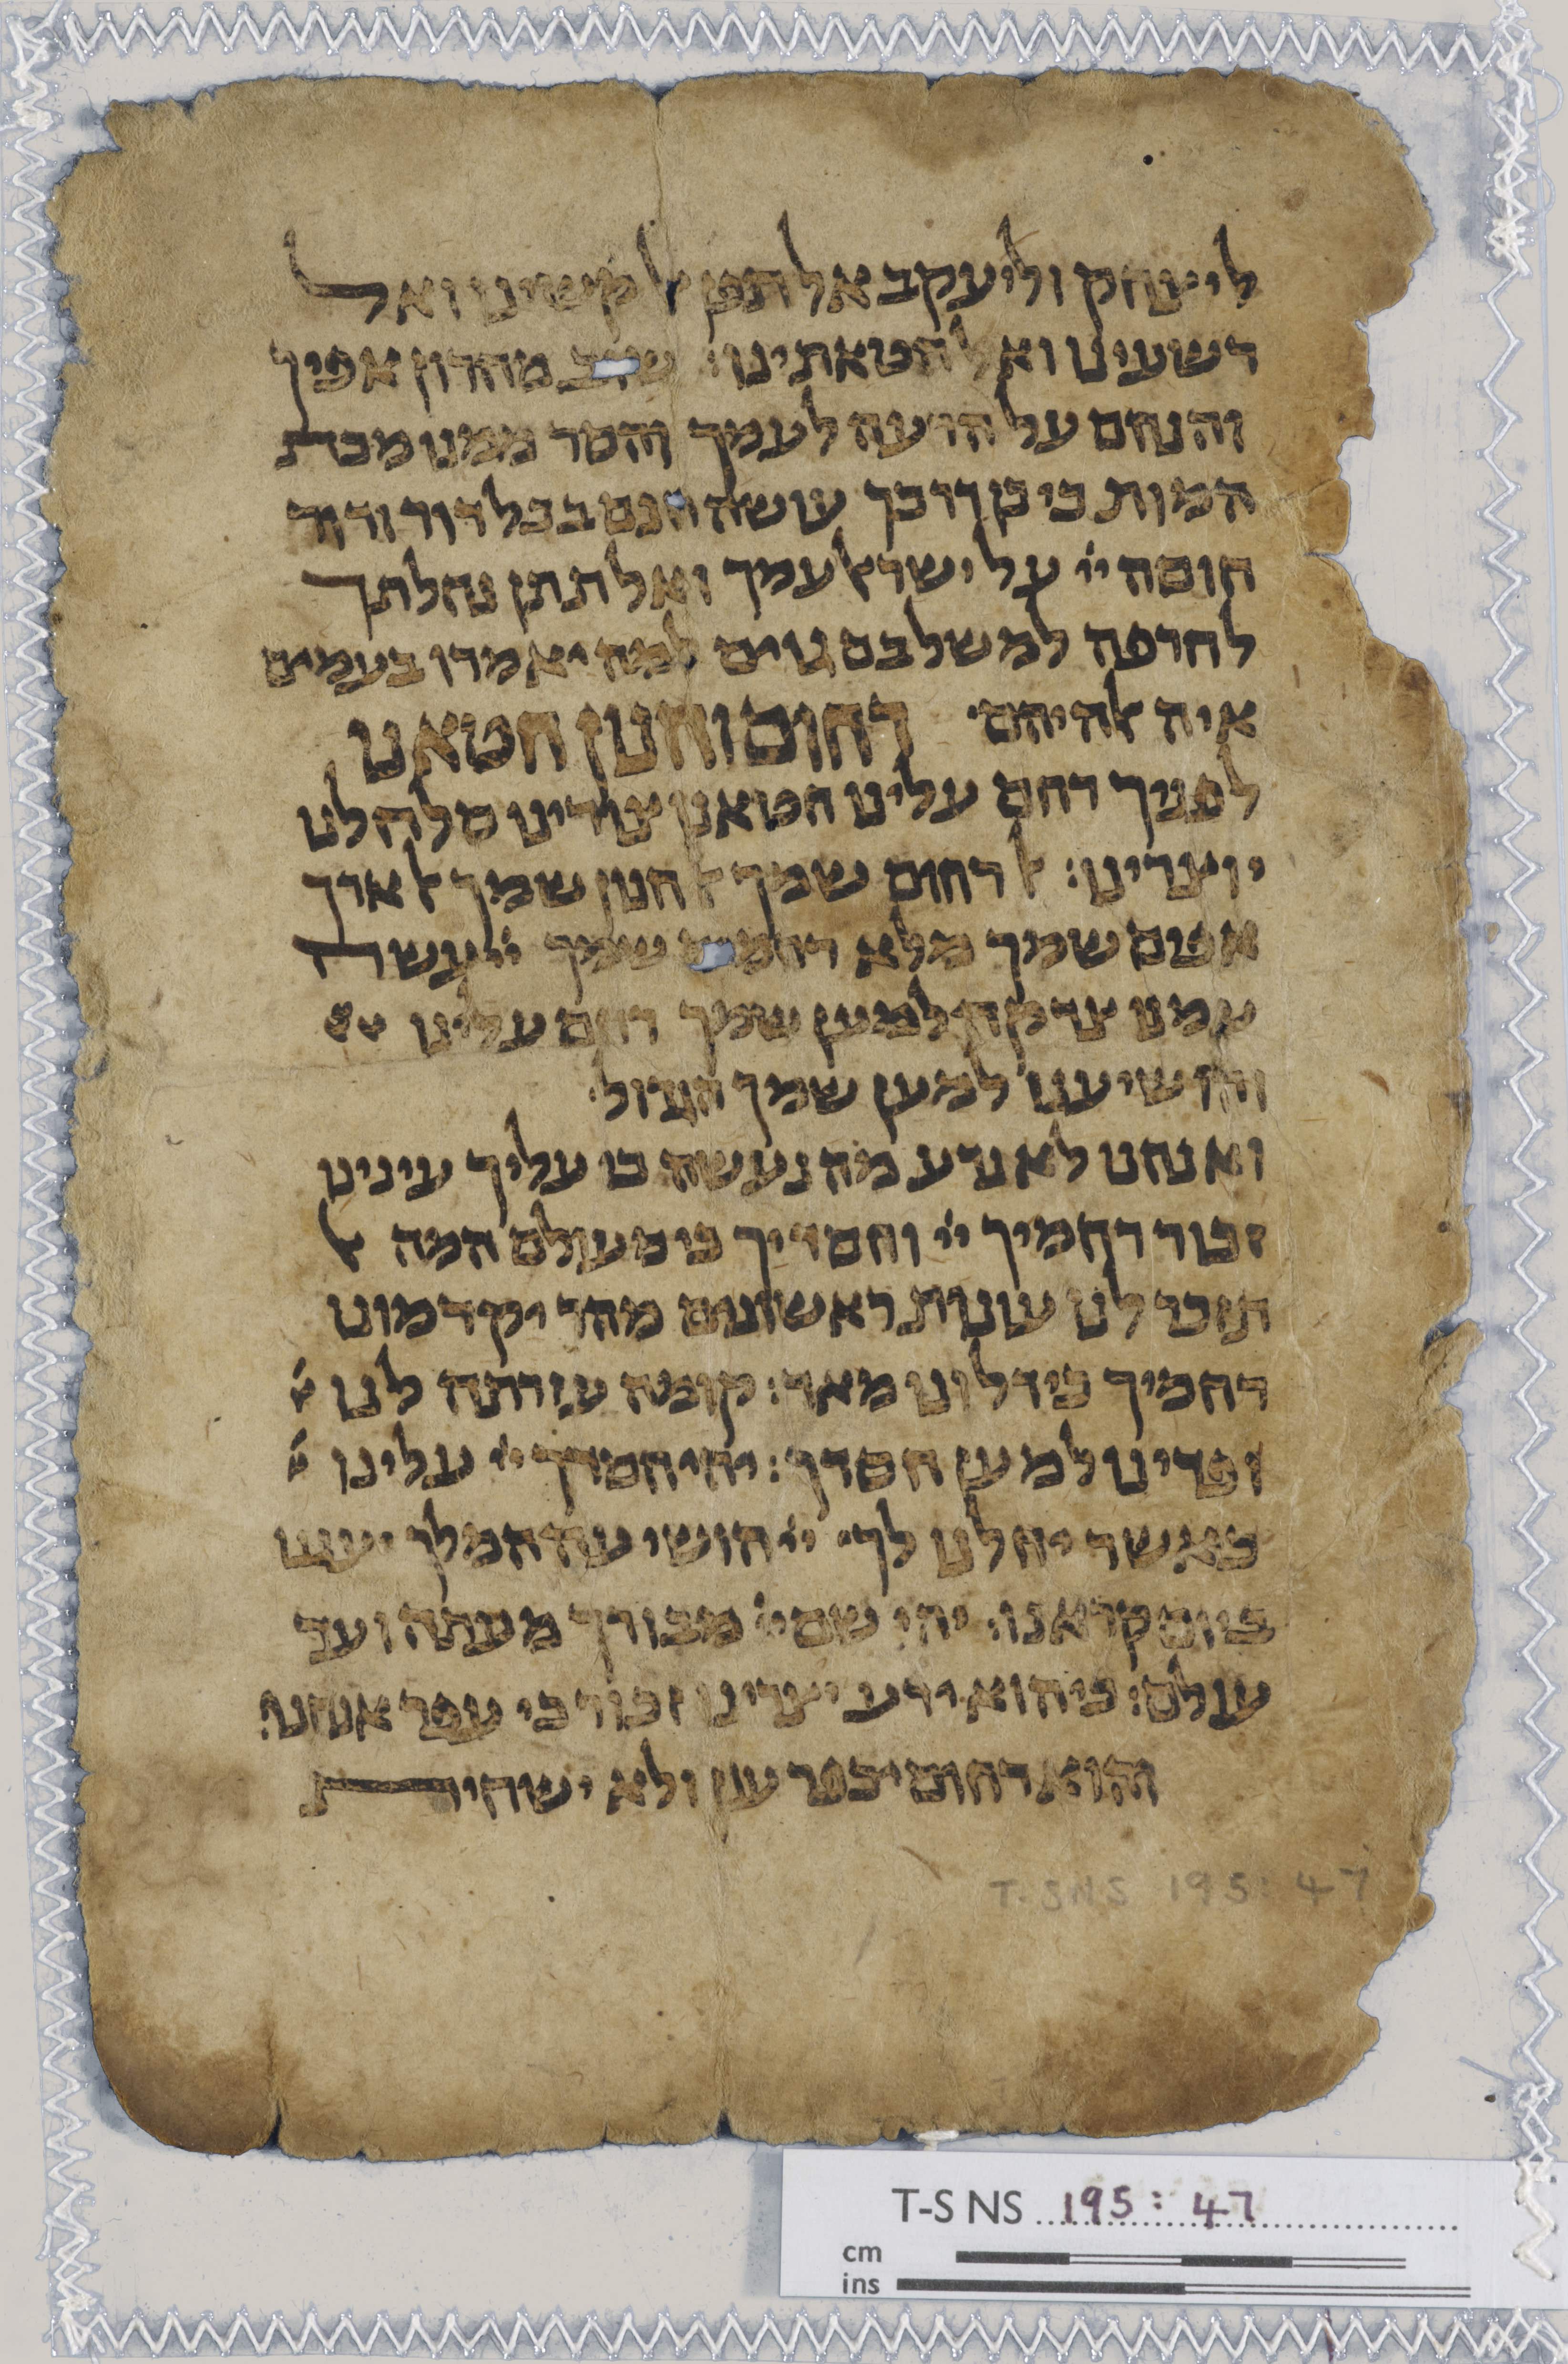 ליצחק וליעקב אל תפן לקשינו ואל
רשעינו ואל חטאתינו: שוב מחרון אפיך
והנחם על הרעה לעמך והסר ממנו מכת
המות כי כן דרכך עושה חנם בכל דור ודור
חוסה יי על ישראל עמך ואל תתן נחלתך
לחרפה למשל בם גוים למה יאמרו בעמים
איה אלהיהם׃ רחום וחנון חטאנו
לפניך רחם עלינו חטאנו צורינו סלח לנו
יוצרינו: אל רחום שמך אל חנון שמך אל ארך
אפים שמך מלא רחמים שמך יי עשה
עמנו צדקה למען שמך רחם עלינו
והושיענו למען שמך הגדול׃
ואנחנו לא נדע מה נעשה כי עליך עינינו
זכור רחמיך יי וחסדיך כי מעולם המה אל
תזכר לנו עונות ראשונים מהר יקדמונו
רחמיך כי דלונו מאד: קומה עזרתה לנו
ופדינו למען חסדך: יהי חסדך יי עלינו
כאשר יחלנו לך׃ יי הושיעה המלך יעננו
ביום קראנו׃ יהי שם יי מבורך מעתה ועד
עולם: כי הוא ידע יצרינו זכור כי עפר אנחנו׃
והוא רחום יכפר עון ולא ישחית
T-S NS 195:47
T-S NS 195: 47
cm
ins